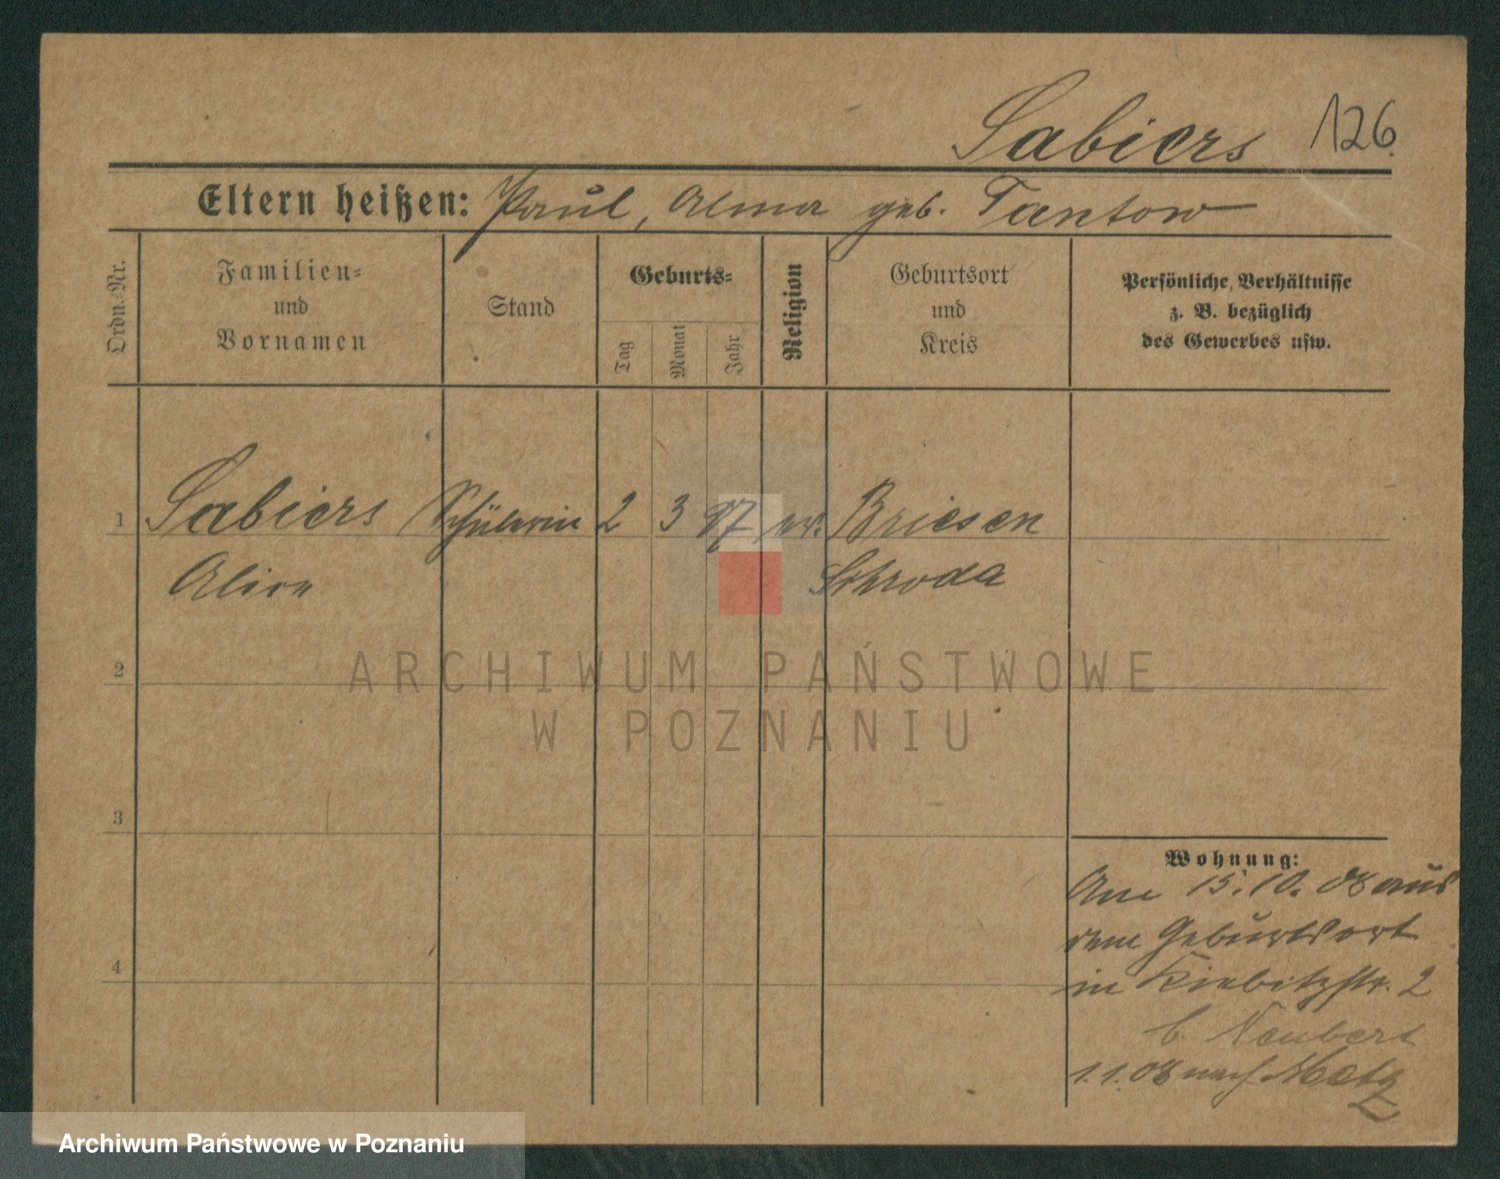 Sabiers 126
Eltern heißen: Paul, Alma geb. Tantow
Ordn.-Nr.
Familien-
und
Vornamen
Stand
Geburts-
Tag
Monat
Jahr
Religion
Geburtsort
und
Kreis
Persönliche Verhältnisse
z. B. bezüglich
des Gewerbes usw.
1 Sabiers Schülerin 2 3 97 ev. Briesen
Alice Schroda
2
ARCHIWUM PAŃSTWOWE
W POZNANIU
3
Wohnung:
Am 15. 10. 08 aus
dem Geburtsort
in Kiebitzstr. 2
b. Neubert
4
1. 1. 08 nach Metz
Archiwum Państwowe w Poznaniu